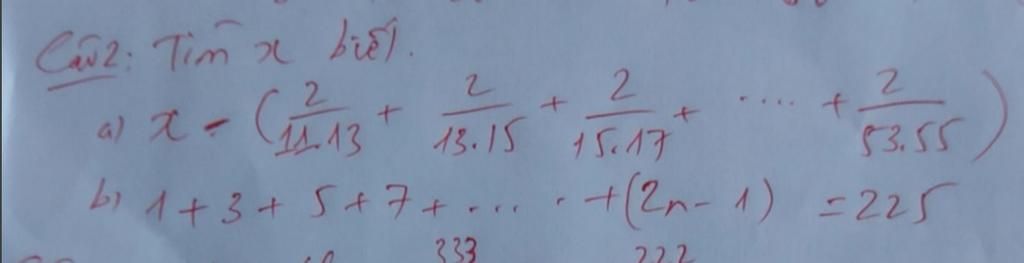 Câu2: Tìm x biết.
a) x - (2/11.13 + 2/13.15 + 2/15.17 + .... + 2/53.55)
b) 1 + 3 + 5 + 7 + .... . + (2n - 1) = 225
333 222